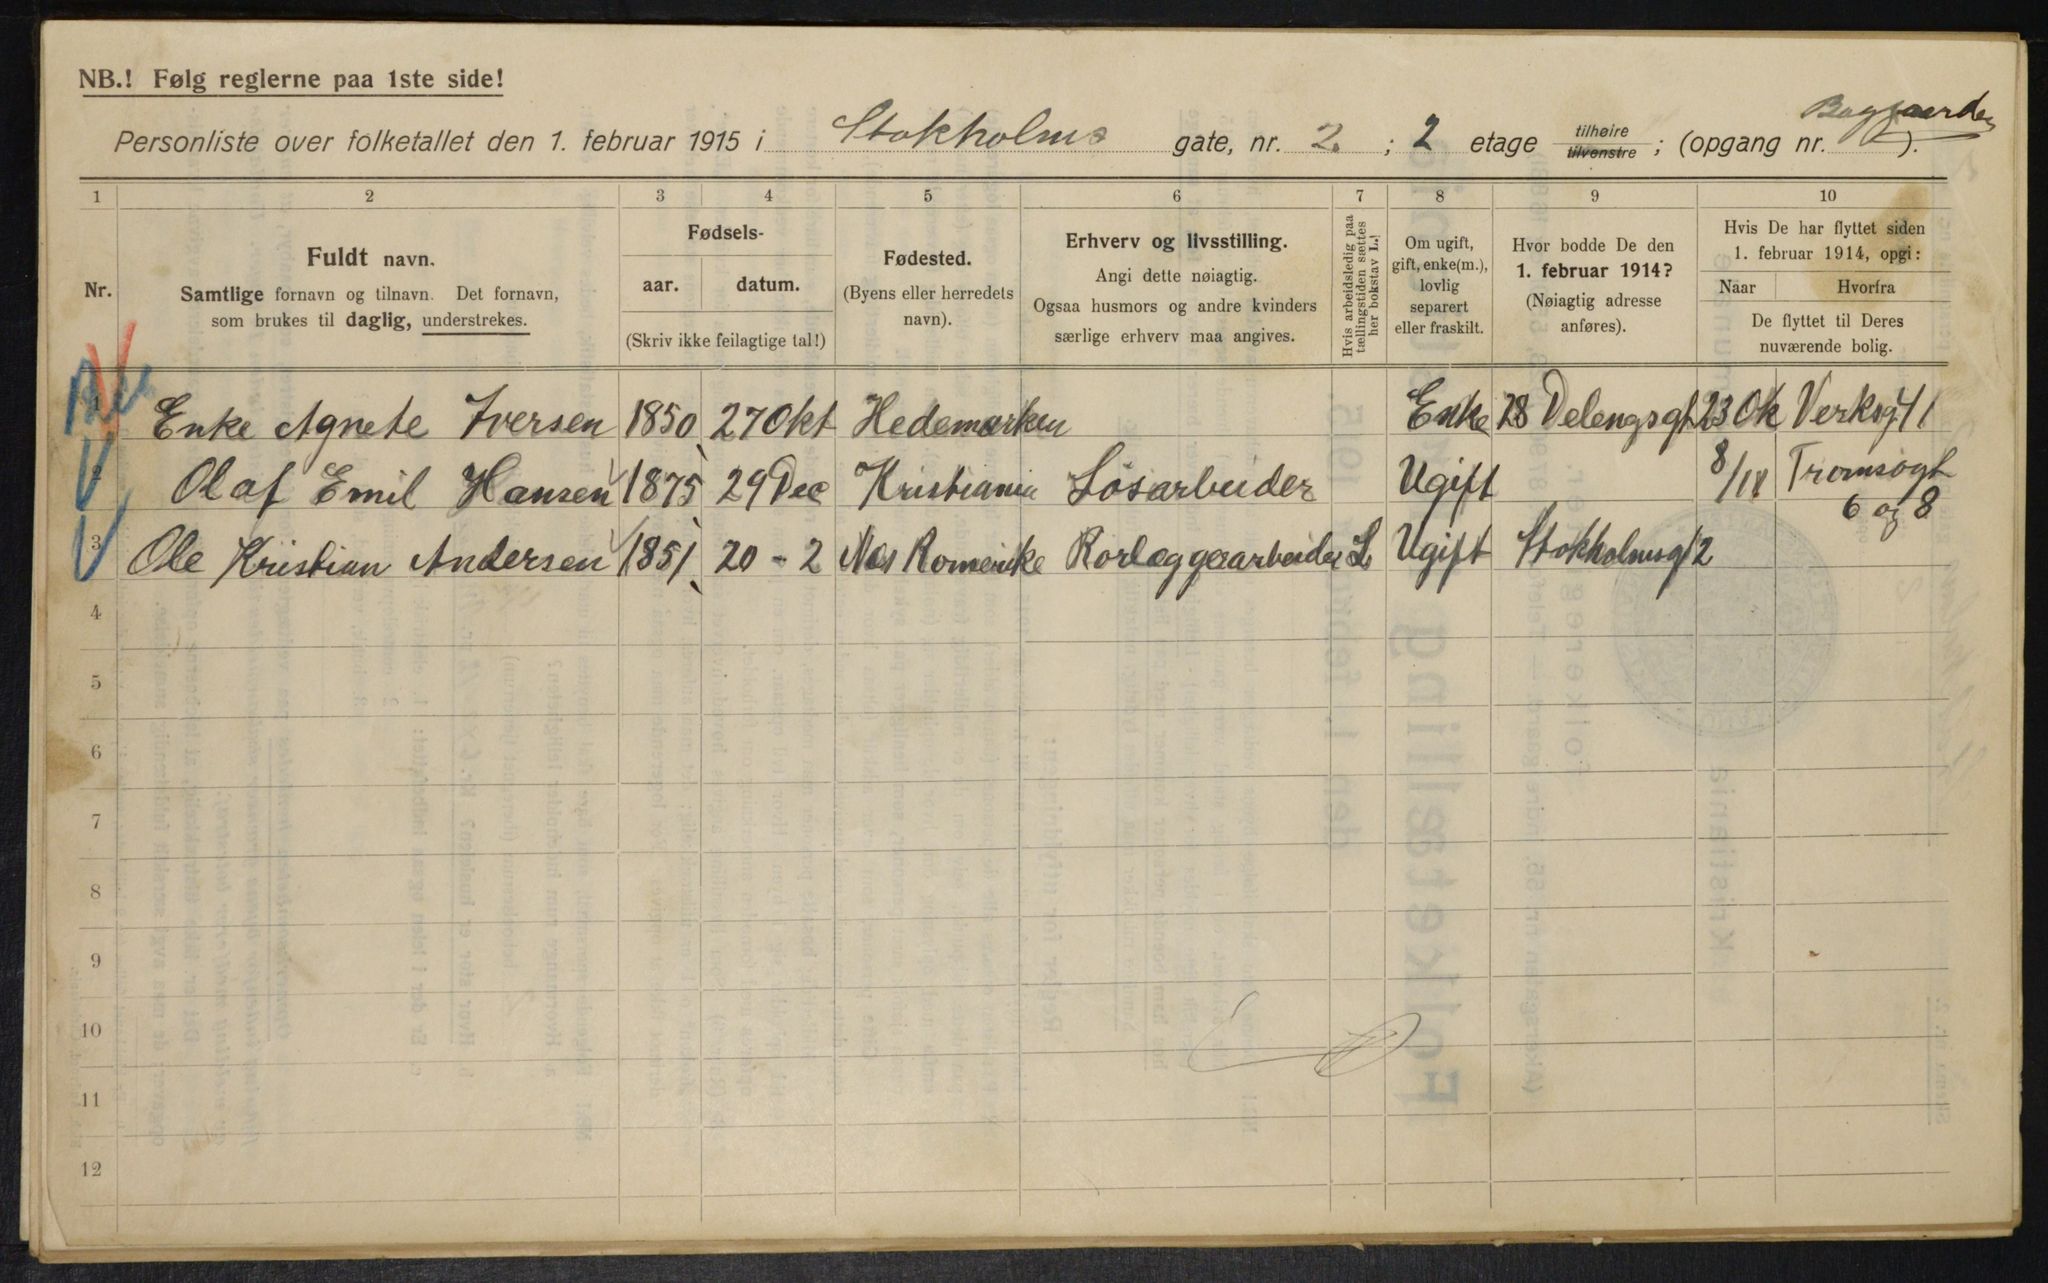 NB.! Følg reglerne paa 1ste side!
Baggaarden
Personliste over folketallet den 1. februar 1915 i Stokholms gate, nr. 2. ; 2 etage tilhøire tilvenstre ; (opgang nr. ).
1 2 3 4 5 6 7 8 9 10
Nr.
Fuldt navn.
Samtlige fornavn og tilnavn. Det fornavn,
som brukes til daglig, understrekes.
Fødsels-
aar. datum.
(Skriv ikke feilagtige tal!)
Fødested.
(Byens eller herredets
navn).
Erhverv og livsstilling.
Angi dette nøiagtig.
Ogsaa husmors og andre kvinders
særlige erhverv maa angives.
Hvis arbeidsledig paa
tællingstiden sættes
her bokstav L.!
Om ugift,
gift, enke(m.),
lovlig
separert
eller fraskilt.
Hvor bodde De den
1. februar 1914?
(Nøiagtig adresse
anføres).
Hvis De har flyttet siden
1. februar 1914, opgi:
Naar Hvorfra
De flyttet til Deres
nuværende bolig.
Enke Agnete Iversen 1850 27 Okt Hedemarken Enke 28 Delengsgt 23 Ok Verksgt 41
2 Olaf Emil Hansen 1875 29 Dec Kristiania Løsarbeider Ugift 8/ Tromsøgt
6 og 8
3 Ole Kristian Andersen 1851 20 - 2 Nes Romerike Rorlæggerarbeider L Ugift Stokholmsgt 2
4
5
6
7
8
9
10
11
12